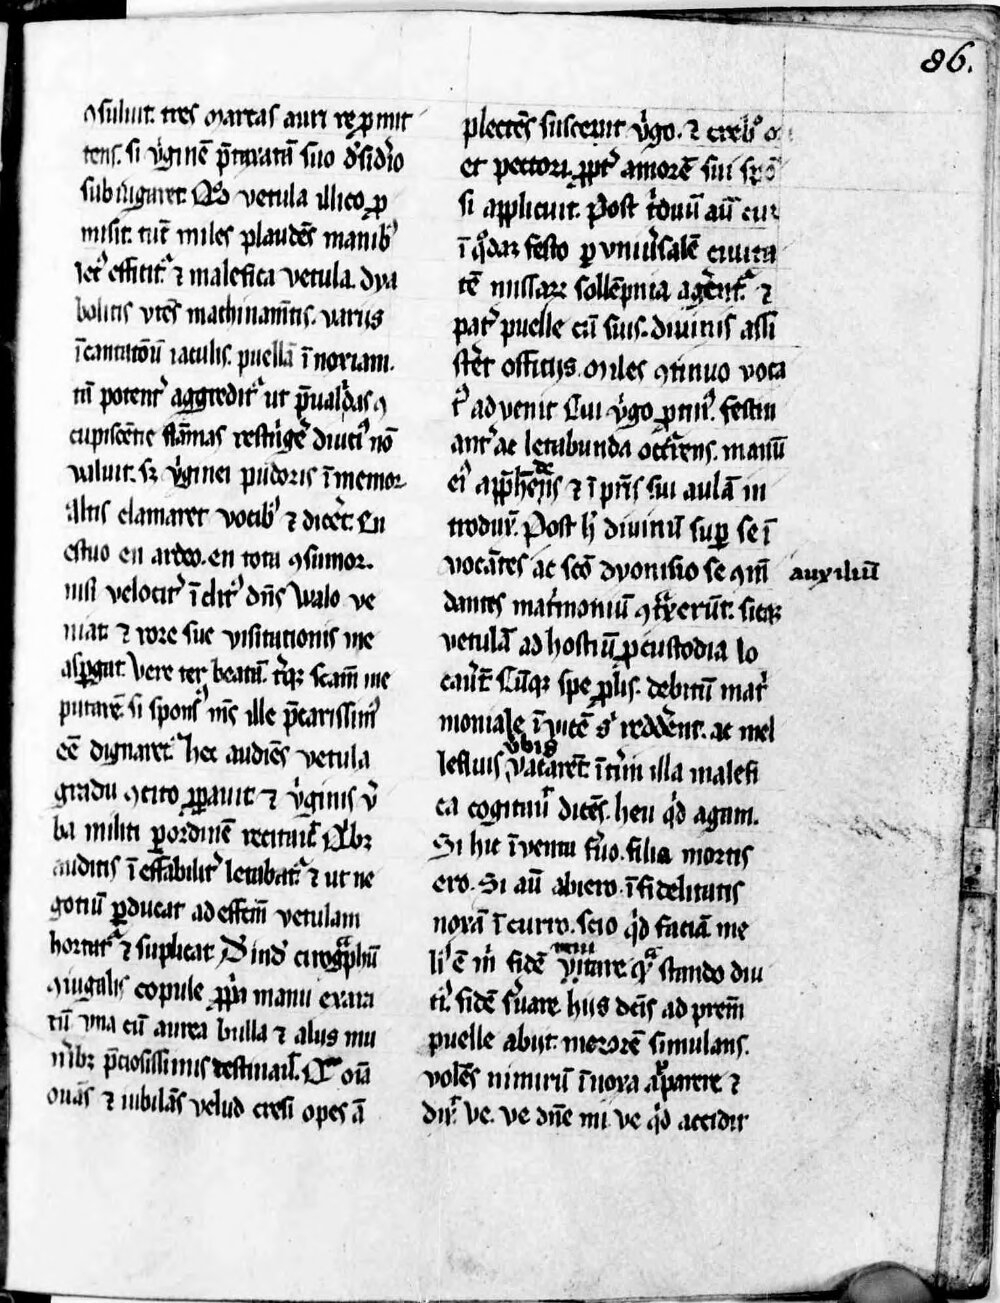 86.
ɔsuluit. tres marcas auri ei ꝓmit
tens. si v͛ginē p̄taxatā suo d͛sid͛io
subiugaret. Qͦd vetula illico ꝓ
misit. tūc miles plaudēs manibꝰ
letꝰ efficit᷑ ⁊ malefica vetula. dya
bolicis vtēs machinam̄tis. variis
īcantatōnū iaculis. puellā īnoxiam.
tn̄ potent͛ aggredit᷑ ut p̄ualidas ɔ
cupiscētie flāmas restīg͛e diuciꝰ nō
valuit. sꝫ v͛ginei pudoris īmemor
altis clamaret vocibꝰ ⁊ dic͛et. En
estuo en ardeo. en tota ɔsumor.
nisi velocit͛ īclitꝰ dn̄s Walo ve
niat ⁊ rore sue visitationis me
asp͛gat. Vere ter beatā. t͛qꝫ me
putarē. si sponsꝰ m̄s ille p̄carissimꝰ
eē dignaret᷑ hec audiēs vetula
gradu ɔcito ꝓperauit ⁊ v͛ginis v͛
ba militi ꝑ ordinē recitauit. Qͥbꝫ
auditis īeffabilit͛ letabat᷑ ⁊ ut ne
gotiū ꝑducat ad effcm̄ vetulam
hortat᷑ ⁊ suplicat. Dind͛ cirogᷓphū
ɔiugalis copule ꝓpria manu exara
tū vna cū aurea bulla ⁊ aliis mu
n͛ibꝫ p̄ciosissimis destinauit. Q̄ oīa
ouās ⁊ iubilās velud cresi opes ā
plectēs suscepit v͛go. ⁊ crebꝰ
et pectori. ꝓpt͛ amorē sui spō
si applicuit. Post t͛duū aūt cū
ī qͦdaꝫ festo ꝑ vniu͛salē ciuita
tē missaꝝ sollēpnia agērēt᷑ ⁊
pat͛ puelle cū suis. diuinis assi
st͛et officiis. miles ɔtinuo voca
tꝰ advenit Cui v͛go ꝓtinꝰ. festin
ant͛ ac letabunda occ͛rens. manū
eiꝰ app͛hendēs ⁊ ī p̄ns sui aulā in
trodux͛. Post hͦ diuinū suꝑ se ī
vocātes ac scō dyonisio se ɔm̄
auxiliū
dantes mat͛moniū ɔt͛xerūt. sicqꝫ
vetulā ad hostiū ꝓ custodia lo
cau͛t. Cūqꝫ spe ꝓlis. debitū mat͛
moniale īuicē s͛ redd͛ent. ac mel
lefluis v͛bis vacarēt īt͛im illa malefi
ca cogitauit dicēs. heu qͥd agam.
Si hic īventa fu͛o. filia mortis
ero. Si aūt abiero. īfidelitatis
noxā īcurro. scio qͥd faciā me
liꝰ ē m̄ fidē vitare qᷓ stando diu
tiꝰ. fidē s͛uare hiis dc̄is ad prem̄
puelle abiit. merorē simulans.
volēs nimirū īnoxia apparere ⁊
dix͛. ve. ve dn̄e mi ve qͥd accidit